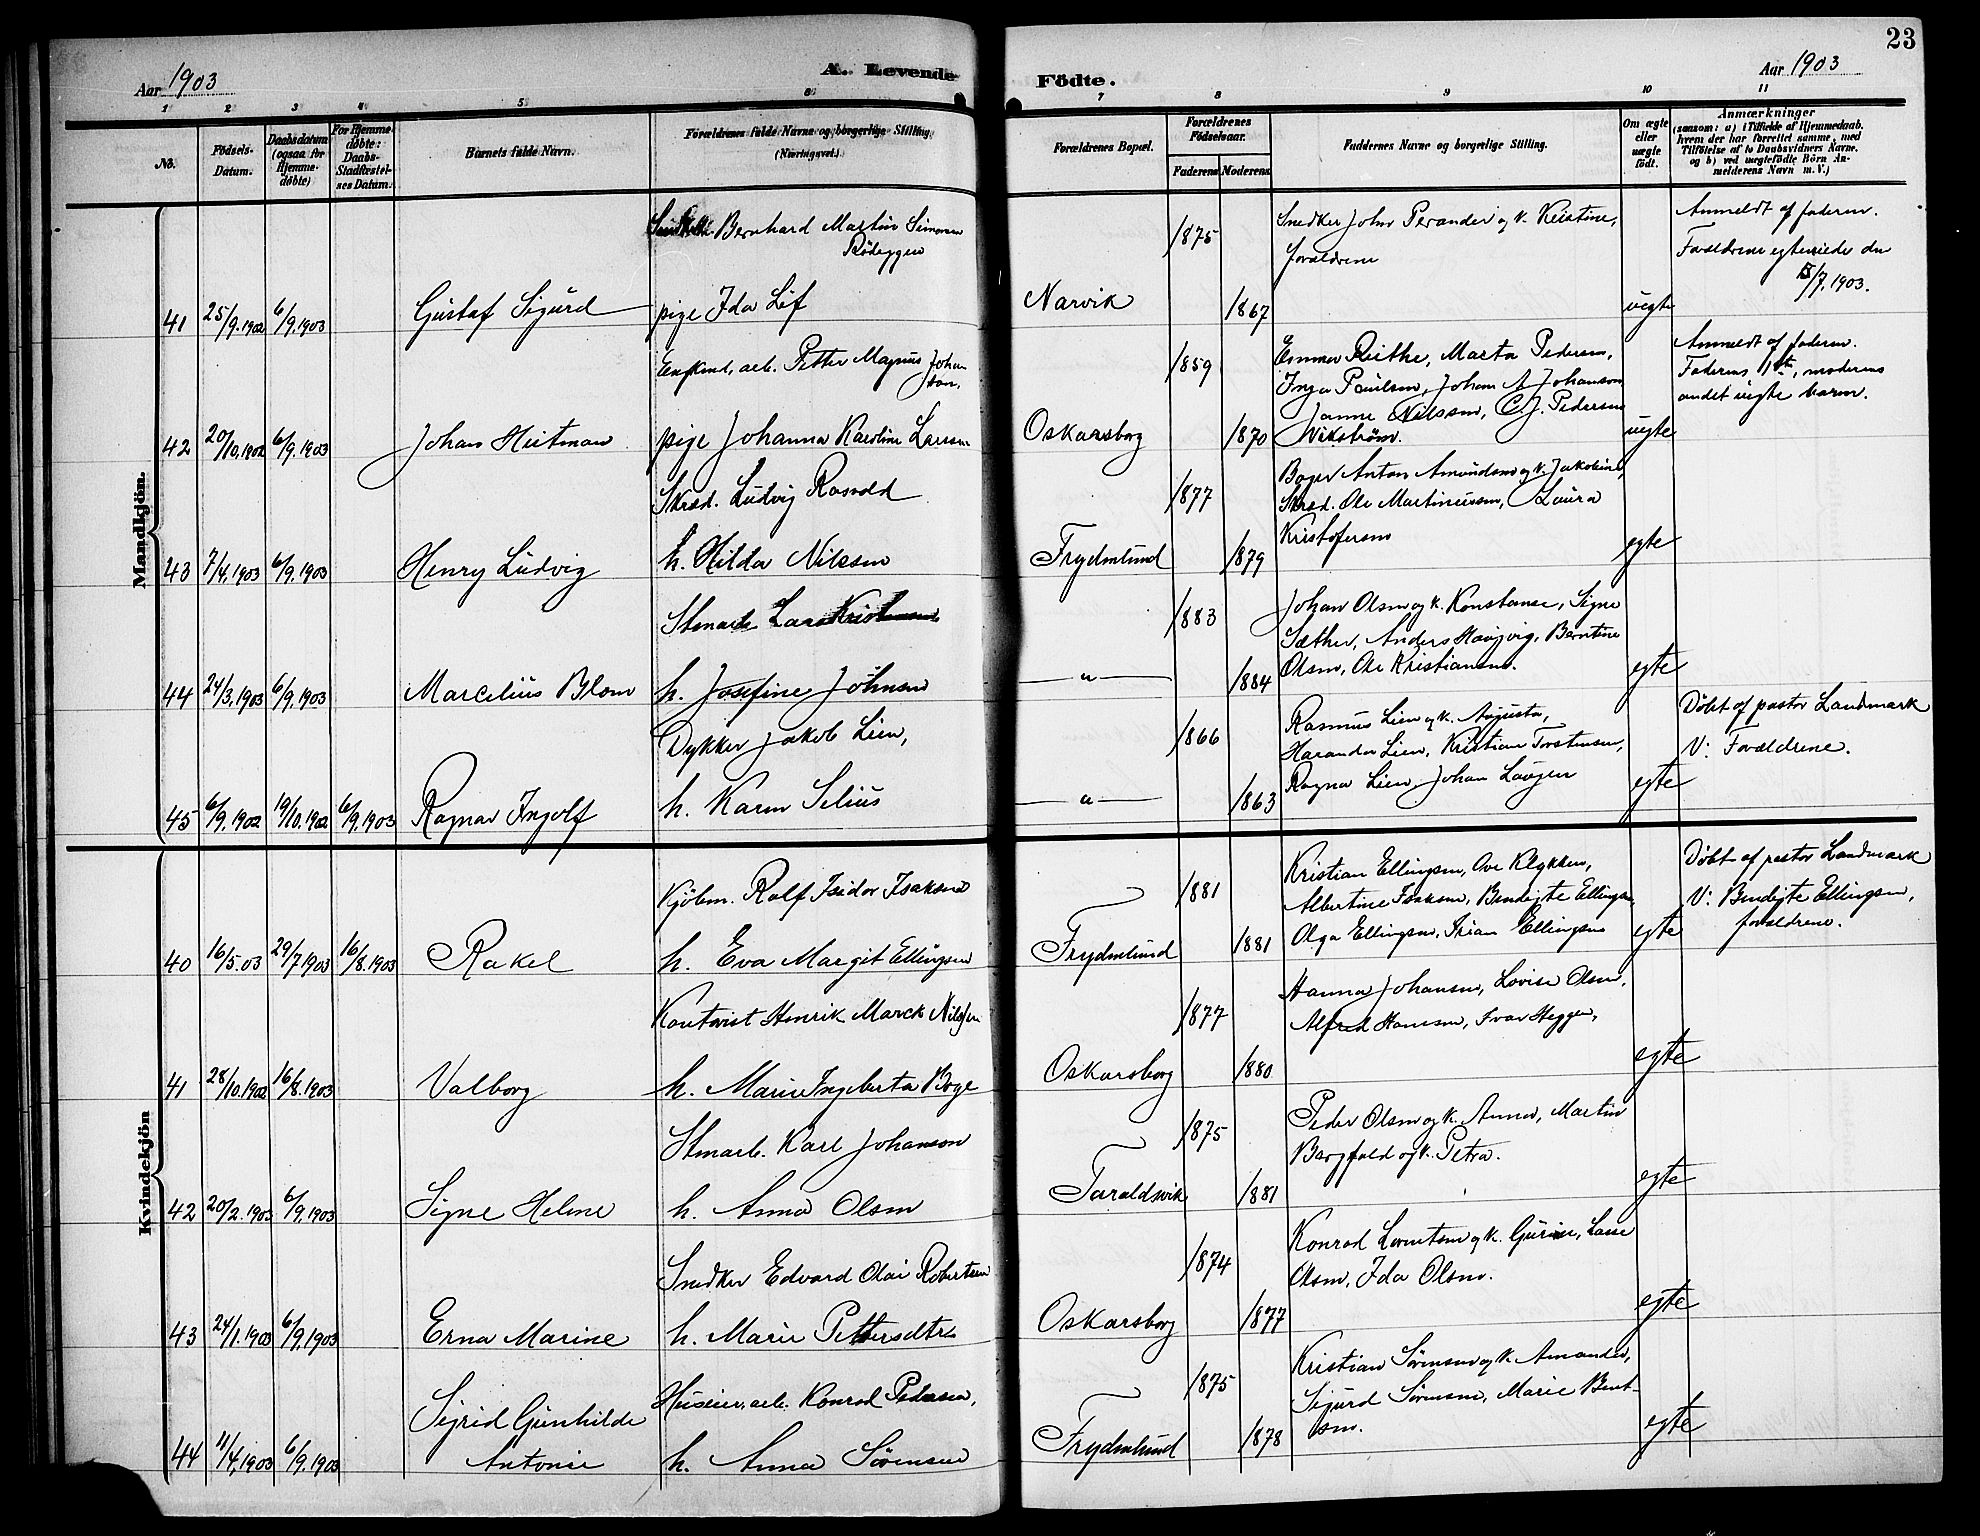 23
Aar 1903
A. Levende
Födte.
Aar 1903
1 2 3 4 5 6 7 8 9 10 11
No.
Födsels-Datum.
Daabsdatum (ogsaa for Hjemmedöbte)
For Hjemmedöbte: Daabs-Stadfæstelses Datum.
Barnets fulde Navn.
Forældrenes fulde Navne og borgerlige Stilling. (Næringsvei.)
Forældrenes Bopæl.
Forældrenes Födselsaar.
Faderens Moderens
Faddernes Navne og borgerlige Stilling.
Om ægte eller uægte födt.
Anmærkninger
(saasom: a) i Tilfælde af Hjemmedaab, hvem der har forrettet samme, med Tilföielse af to Daabsvidners Navne, og b) ved uægtefödte Börn Anmelderens Navn m. V.)
Mandkjön.
Bernhard Martin Simonsen
1875
Snedker John Perander og k. Kristine,
forældrene
Anmeldt af faderen.
Forældrene egteviede den
/7, 1903.
41 25/9.1902 6/9.1903 Gustaf Sigurd pige Ida Löf Narvik 1867 uegte
Enkemd. arb. Petter Magnus Johanson.
1859
Marta Pedersen,
Inga Paulsen, Johan A Johanson
Janne Nilssen, C. J. Pedersen
Wikström.
Anmeldt af faderen.
Faderens 1ste, moderens
andet uegte barn.
42 20/10.1902 6/9.1903 Johan Heitman pige Johanna Karoline Larsen Oskarsborg 1870 uegte
Skræd. Ludvig Rosvold
1877
Bager Anton Amundsen og k. Jakobine,
Skræd. Ole Martinussen, Laura
Kristofersen
43 7/4.1903 6/9.1903 Henry Ludvig h. Hilda Nilssen Frydenlund 1879 egte
Stenarb. Lars Kristensen
1883
Johan Olsen og k. Konstanse, Signe
Sæther, Anders Haugvig, Berntine
Olsen, Ole Kristiansen.
44 24/3.1903 6/9.1903 Marcelius Blom h. Josefine Johnsen —„— 1884 egte
Dykker Jakob Lien,
1866
Rasmus Lien og k. Augusta,
Harander Lien, Kristian Torstensen,
Ragna Lien, Johan Laugen
Döbt af pastor Landmark
V: Forældrene.
45 6/9.1902 19/10.1902 6/9.1903 Ragnar Ingolf h. Karen Selius —„— 1863 egte
Kvindekjön
Kjöbm. Rolf Isidor Isaksen
1881
Kristian Ellingsen, Ove Klykken,
Albertine Isaksen, Bendigte Ellingsen,
Olga Ellingsen, Ellingsen
Döbt af pastor Landmark
V: Bendigte Ellingsen,
forældrene.
40 16/5.03 29/7.1903 16/8.1903 Rakel h. Eva Margit Ellingsen Frydenlund 1881 egte
Kontorist Henrik Marck Nilssen
1877
Hanna Johansen, Lovise Olsen,
Alfred Hansen, Ivar Heggen,
41 28/10.1902 16/8.1903 Valborg h. Marie Ingeberta Boge Oskarsborg 1880 egte
Stenarb. Karl Johanson
1875
Peder Olsen og k. Anna, Martin
Bergfald og k. Petra.
42 20/2.1903 6/9.1903 Signe Helene h. Anna Olsen Taraldsvik 1881 egte
Snedker Edvard Olai Robertsen
1874
Konrad Lorentsen og k. Gurine, Lasse
Olsen, Ida Olsen.
43 24/1.1903 6/9.1903 Erna Marine h. Marie Pettersdtr Oskarsborg 1877 egte
Huseier, arb. Konrad Pedersen,
1875
Kristian Sörensen og k. Amanda,
Sigurd Sörensen, Marie Bentsen.
44 11/4.1903 6/9.1903 Sigrid Gunhilde Antonie h. Anna Sörensen Frydenlund 1878 egte